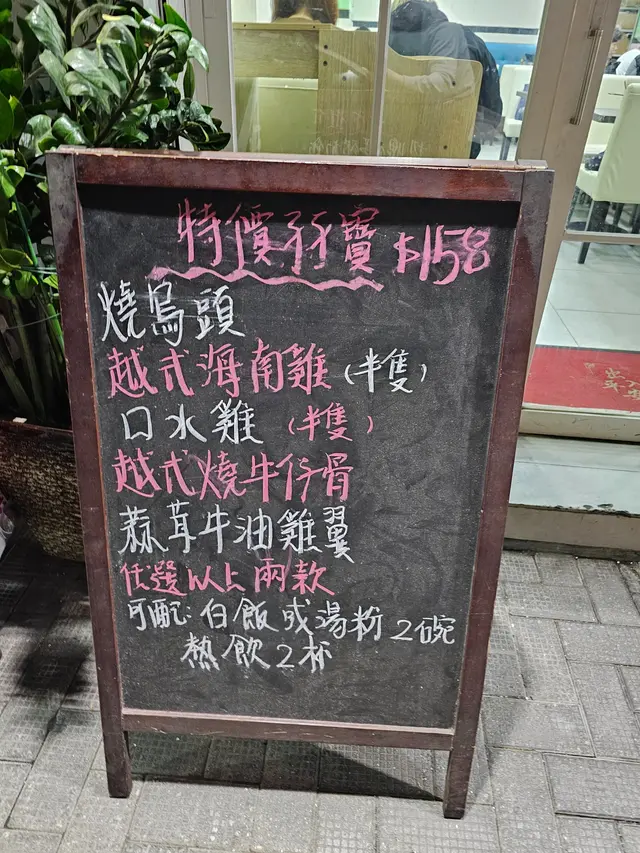 特價孖寶 $158
燒烏頭
越式海南雞（半隻）
口水雞（半隻）
越式燒牛仔骨
蒜茸牛油雞翼
任選以上兩款
可配：白飯或湯粉2碗
熱飲2杯